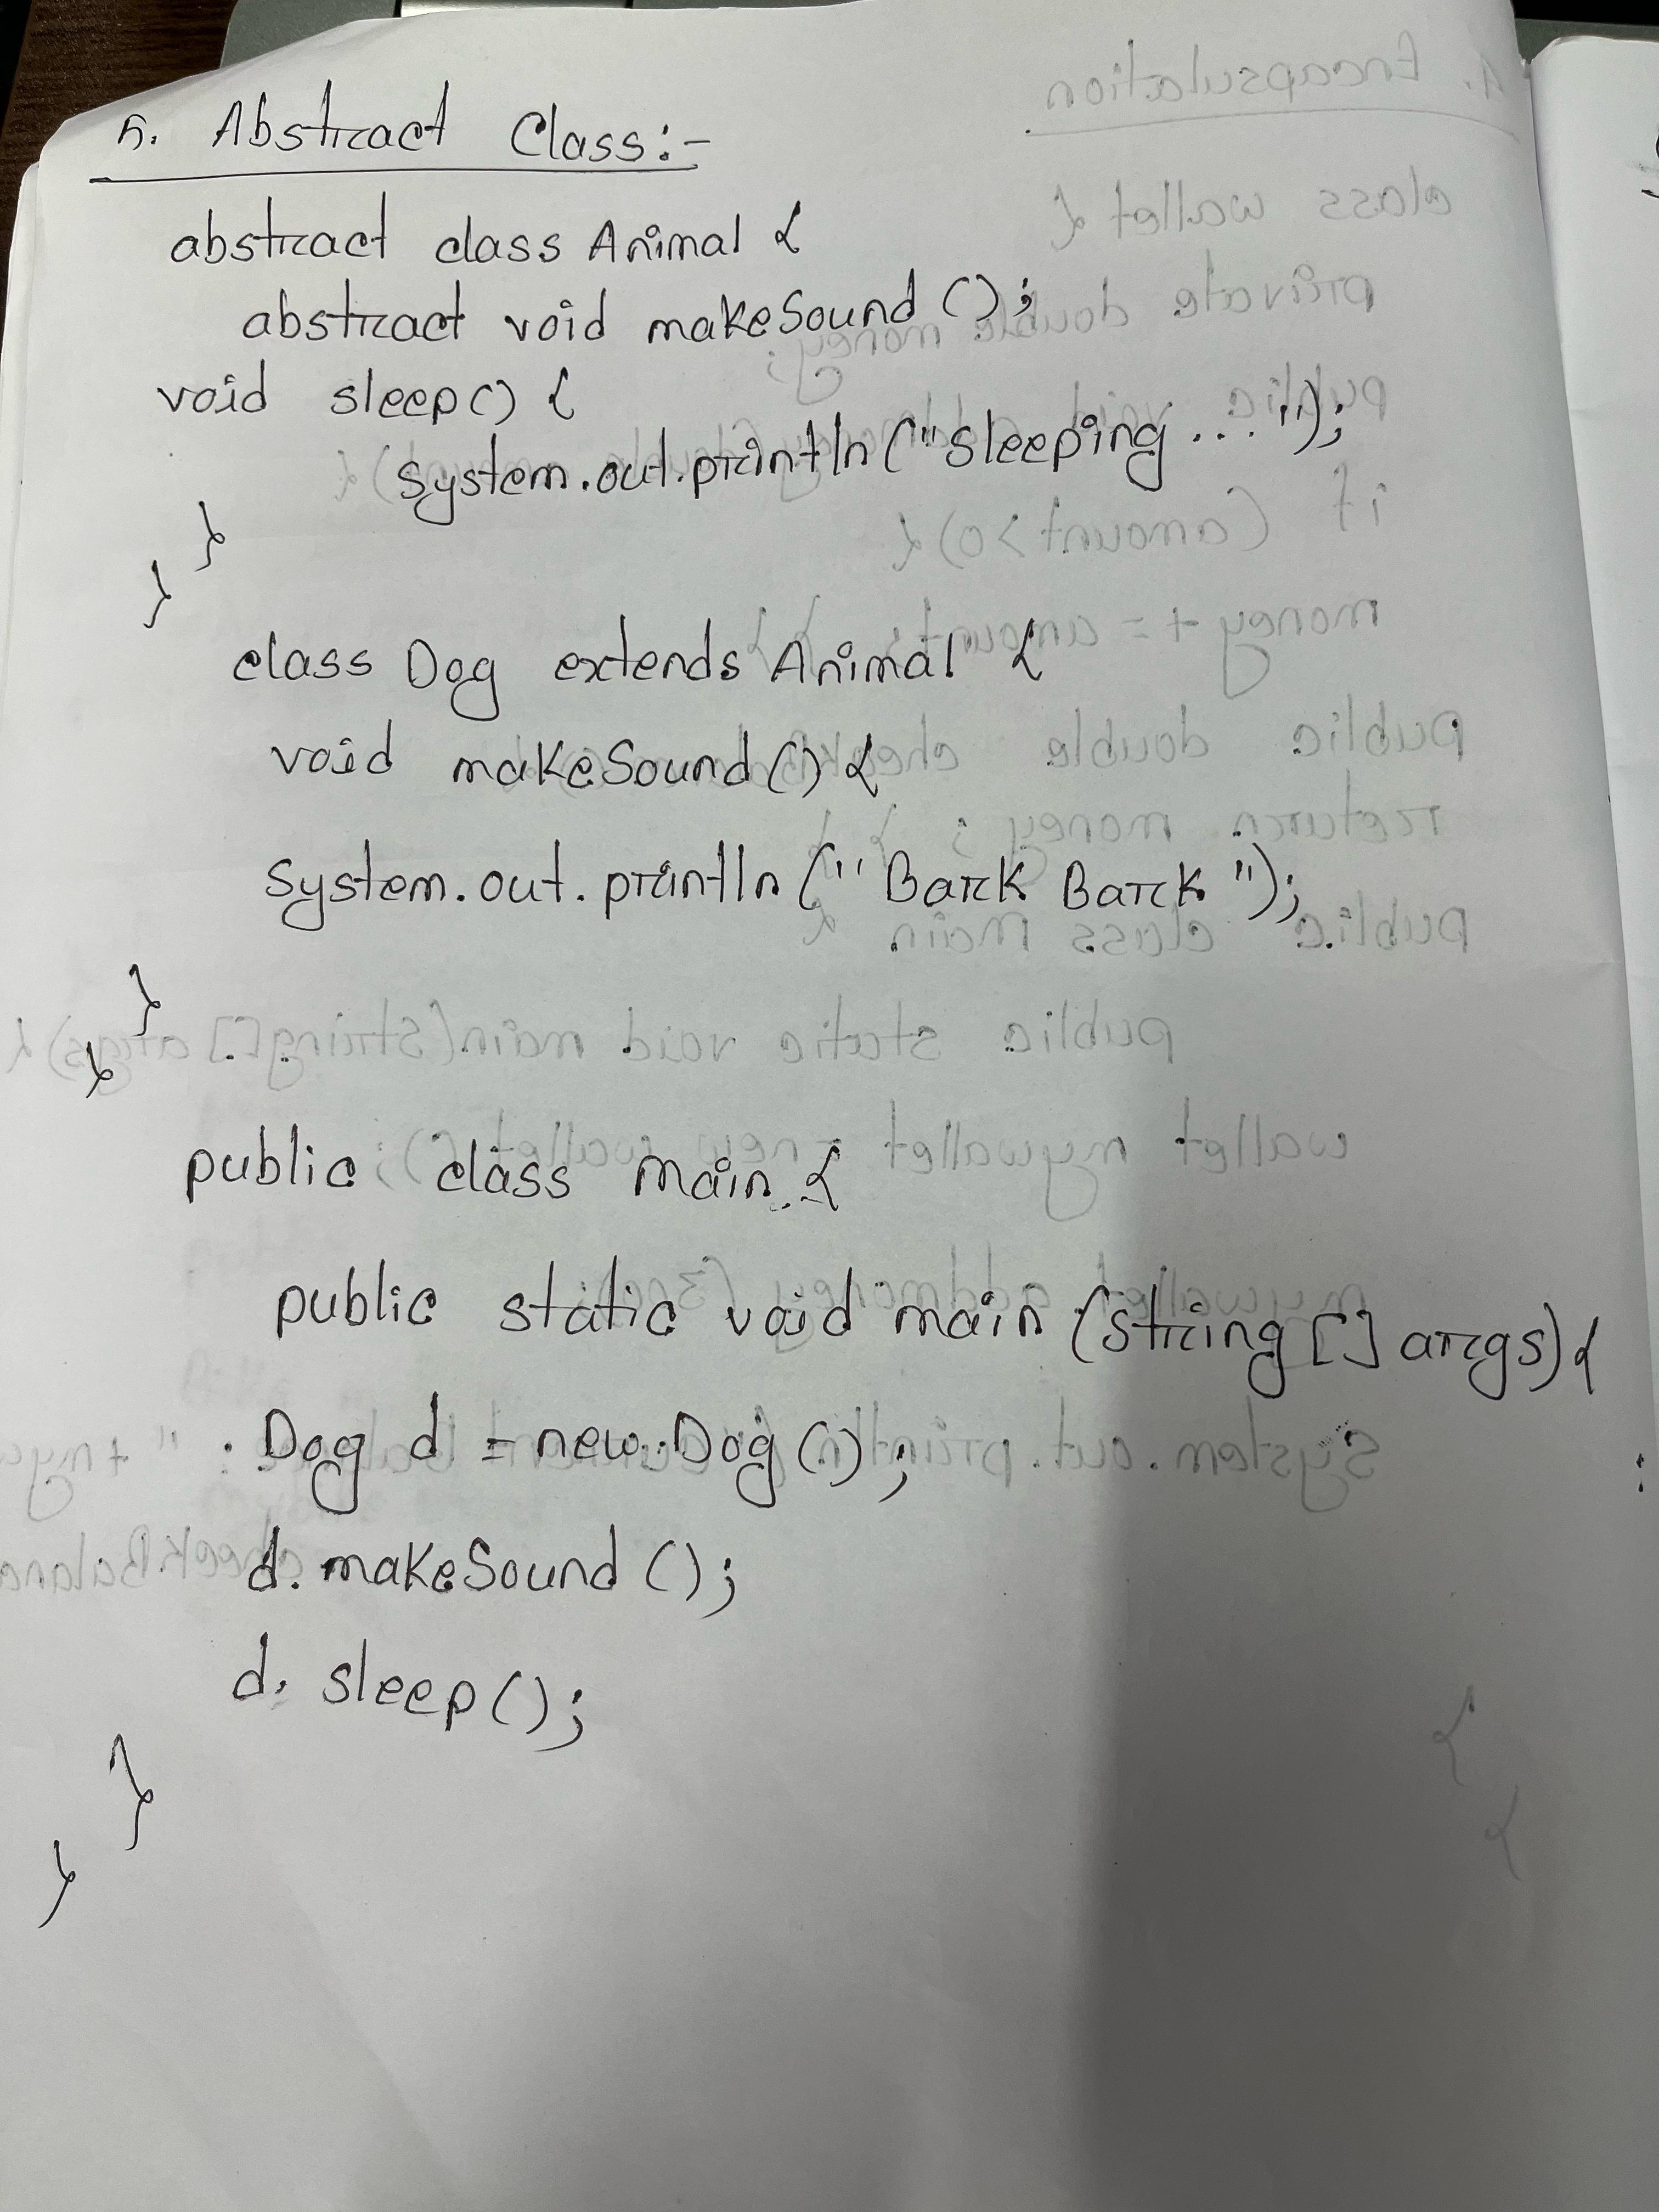 5. Abstract Class:-
abstract class Animal {
abstract void makeSound();
void sleep() {
System.out.println("Sleeping...");
}
}
class Dog extends Animal {
void makeSound() {
System.out.println("Bark Bark");
}
}
public class Main {
public static void main(String[] args) {
Dog d = new Dog();
d.makeSound();
d.sleep();
}
}